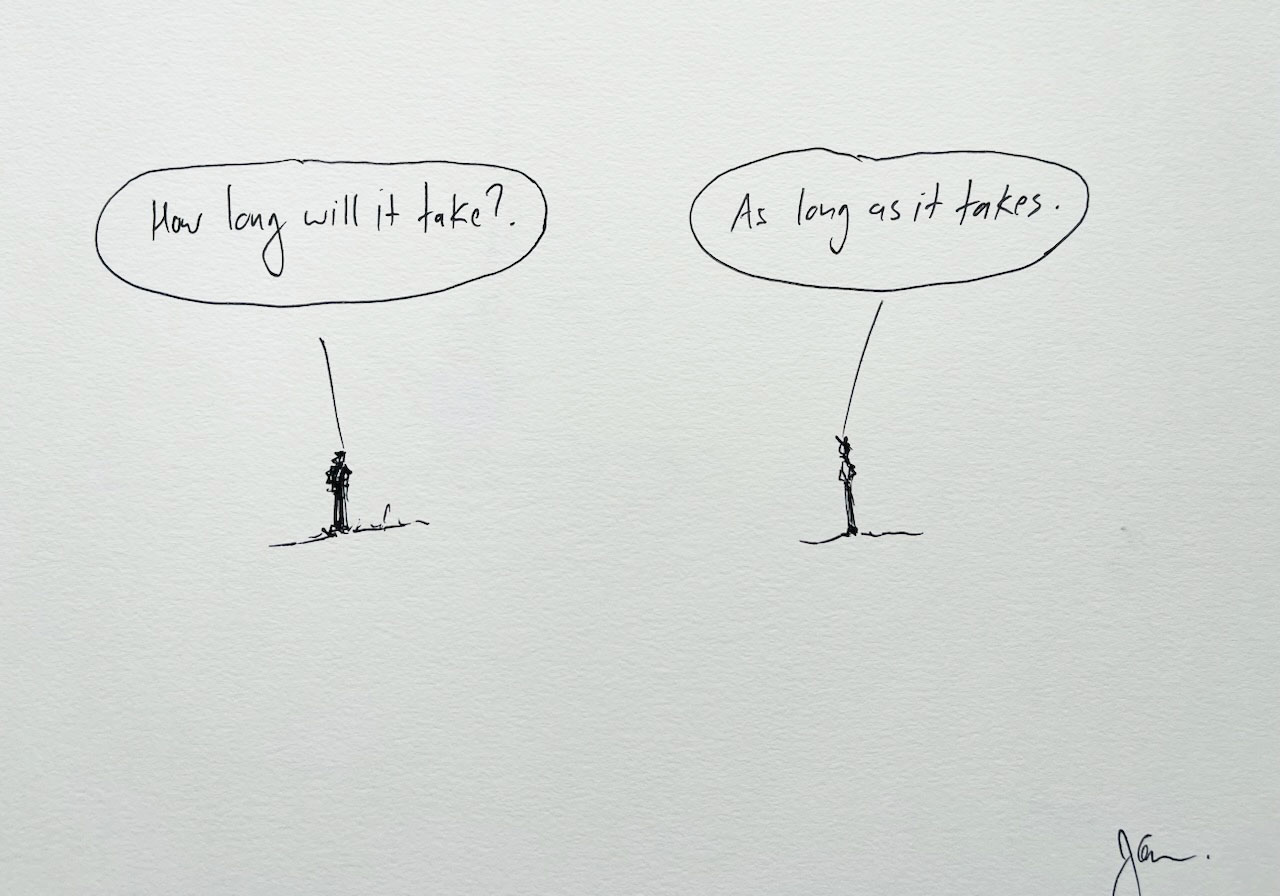 How long will it take?.
As long as it takes.
Jan.